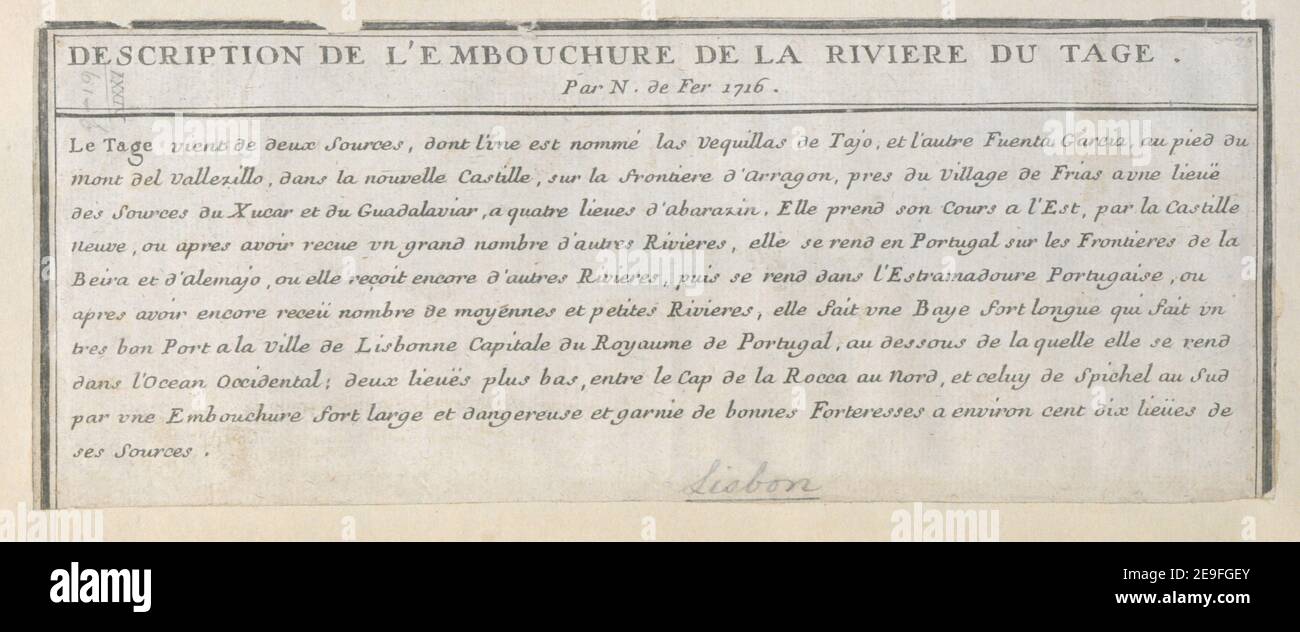 DESCRIPTION DE L'EMBOUCHURE DE LA RIVIERE DU TAGE.
Par N. de Fer 1716.
Le Tage vient de deux Sources, dont l'ine est nommé las Vequillas de Tajo, et l'autre Fuenta Garcia, au pied du
mont del Vallezillo, dans la nouvelle Castille, sur la frontiere d'Arragon, pres du Village de Frias a vne lieuë
des Sources du Xucar et du Guadalaviar, a quatre lieues d'abarazin. Elle prend son Cours a l'Est, par la Castille
neuve, ou apres avoir recue vn grand nombre d'autres Rivieres, elle se rend en Portugal sur les Frontieres de la
Beira et d'alemajo, ou elle reçoit encore d'autres Rivieres, puis se rend dans l'Estramadoure Portugaise, ou
apres avoir encore receü nombre de moyënnes et petites Rivieres, elle fait vne Baye fort longue qui fait vn
tres bon Port a la ville de Lisbonne Capitale du Royaume de Portugal, au dessous de la quelle elle se rend
dans l'Ocean Occidental; deux lieuës plus bas, entre le Cap de la Rocca au Nord, et celuy de Spichel au Sud
par vne Embouchure fort large et dangereuse et garnie de bonnes Forteresses a environ cent dix lieües de
ses Sources.
Lisbon
alamy
Image ID: 2E9FGEY
www.alamy.com